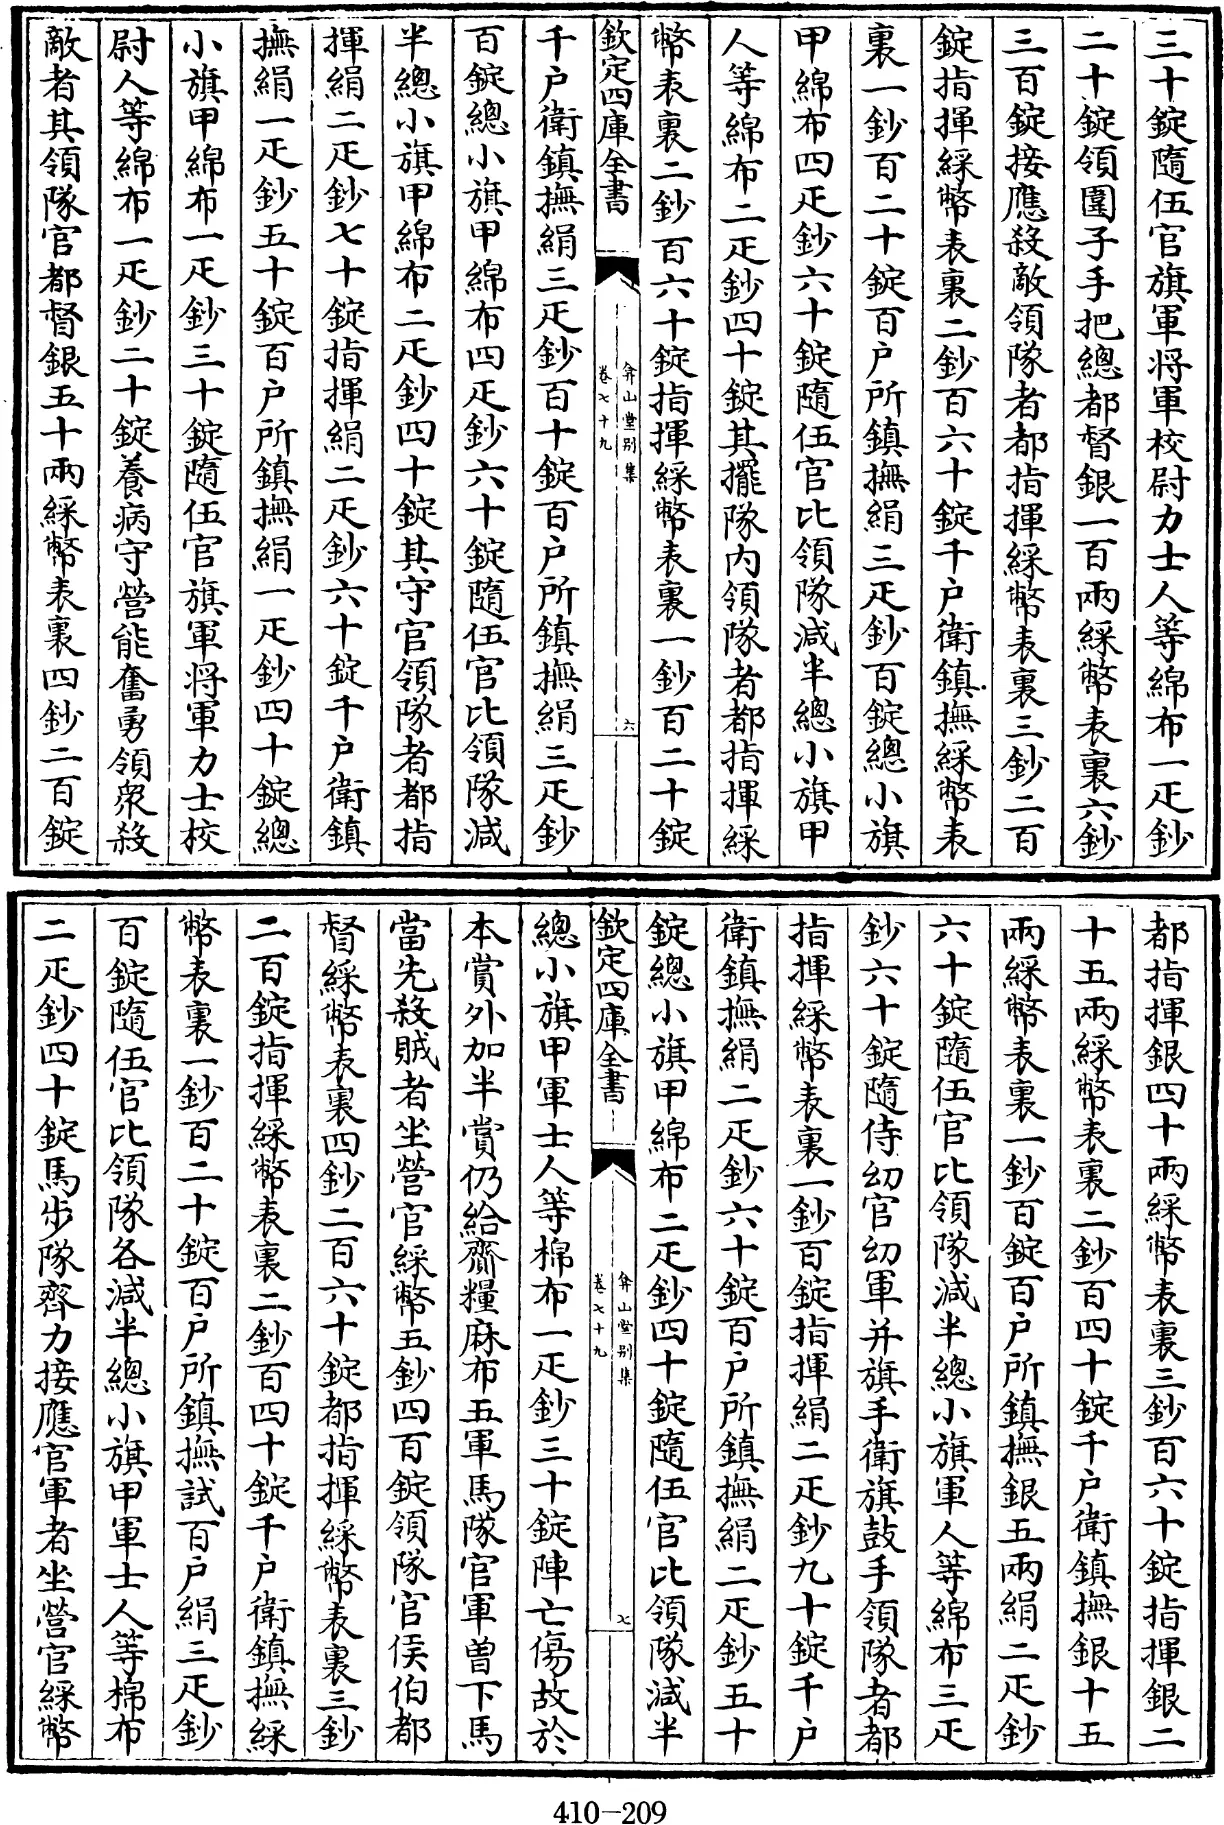 三十錠隨伍官旗軍将軍校尉力士人等綿布一疋鈔
二十錠領圍子手把總都督銀一百兩綵幣表裏六鈔
三百錠接應殺敵領隊者都指揮綵幣表裏三鈔二百
錠指揮綵幣表裏二鈔百六十錠千户衛鎮撫綵幣表
裏一鈔百二十錠百户所鎮撫絹三疋鈔百錠總小旗
甲綿布四疋鈔六十錠隨伍官比領隊減半總小旗甲
人等綿布二疋鈔四十錠其擺隊内領隊者都指揮綵
幣表裏二鈔百六十錠指揮綵幣表裏一鈔百二十錠
欽定四庫全書
弇山堂别集
卷七十九
六
千户衛鎮撫絹三疋鈔百十錠百户所鎮撫絹三疋鈔
百錠總小旗甲綿布四疋鈔六十錠隨伍官比領隊減
半總小旗甲綿布二疋鈔四十錠其守官領隊者都指
揮絹二疋鈔七十錠指揮絹二疋鈔六十錠千户衛鎮
撫絹一疋鈔五十錠百户所鎮撫絹一疋鈔四十錠總
小旗甲綿布一疋鈔三十錠隨伍官旗軍将軍力士校
尉人等綿布一疋鈔二十錠養病守營能奮勇領衆殺
敵者其領隊官都督銀五十兩綵幣表裏四鈔二百錠
都指揮銀四十兩綵幣表裏三鈔百六十錠指揮銀二
十五兩綵幣表裏二鈔百四十錠千户衛鎮撫銀十五
兩綵幣表裏一鈔百錠百户所鎮撫銀五兩絹二疋鈔
六十錠隨伍官比領隊減半總小旗軍人等綿布三疋
鈔六十錠隨侍幼官幼軍并旗手衛旗鼓手領隊者都
指揮綵幣表裏一鈔百錠指揮絹二疋鈔九十錠千户
衛鎮撫絹二疋鈔六十錠百户所鎮撫絹二疋鈔五十
錠總小旗甲綿布二疋鈔四十錠隨伍官比領隊減半
欽定四庫全書
弇山堂别集
卷七十九
七
總小旗甲軍士人等棉布一疋鈔三十錠陣亡傷故於
本賞外加半賞仍給齎糧麻布五軍馬隊官軍曽下馬
當先殺賊者坐營官綵幣五鈔四百錠領隊官侯伯都
督綵幣表裏四鈔二百六十錠都指揮綵幣表裏三鈔
二百錠指揮綵幣表裏二鈔百四十錠千户衛鎮撫綵
幣表裏一鈔百二十錠百户所鎮撫試百户絹三疋鈔
百錠隨伍官比領隊各減半總小旗甲軍士人等棉布
二疋鈔四十錠馬步隊齊力接應官軍者坐營官綵幣
410-209